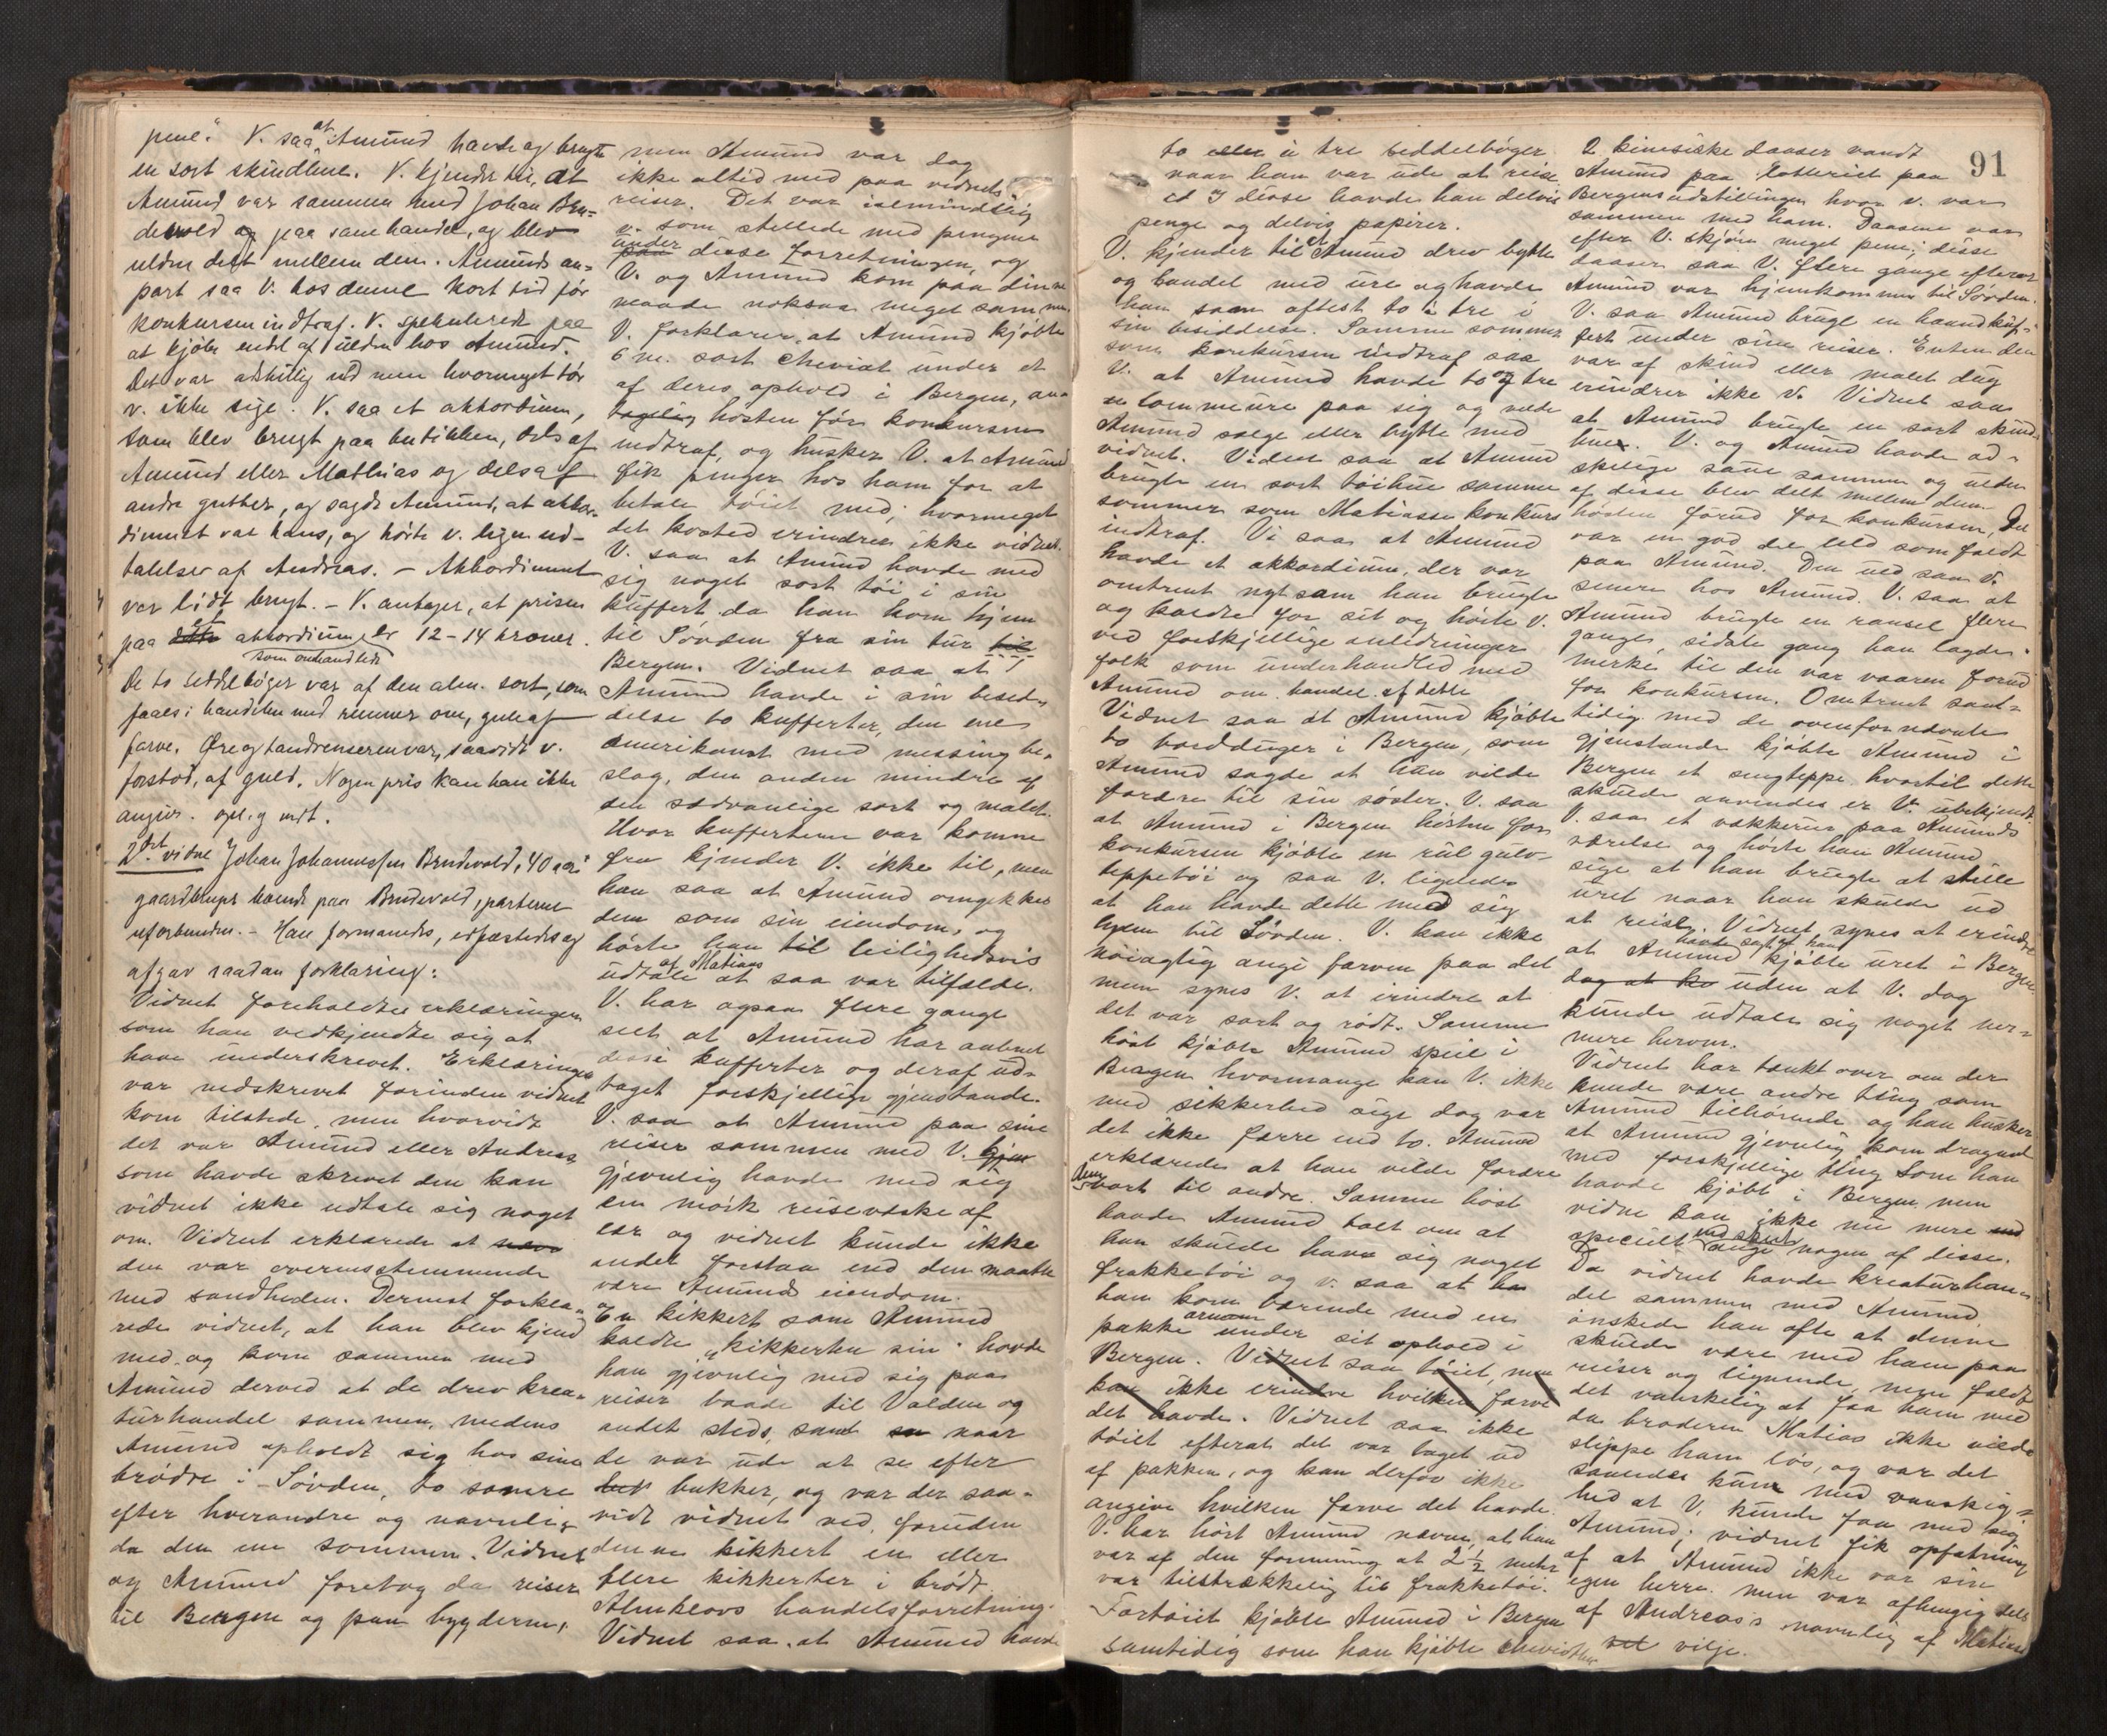 pene." V. saa at Amund havde og brugte
en sort skindhue. V. kjender til, at
Amund var sammen med Johan Bru-
devold og paa sauehandel, og blev
ulden delt mellem dem. Amunds an-
part saa V. hos denne kort tid før
konkursen indtraf. V. spekulerede paa
at kjøbe endel af ulden hos Amund.
Det var adskillig uld men hvormeget tør
v. ikke sige. V. saa et akkordium,
som blev brugt paa butikken, dels af
Amund eller Mathias og dels af
andre gutter, og sagde Amund, at akkor-
diumet var hans, og hørte v. ligen ud-
talelse af Andreas. – Akkordiumet
var lidt brugt. – V. antager, at prisen
paa et akkordium er 12–14 kroner.
som omhandlede
De to seddelbøger var af den alm. sort, som
faaes i handelen med remmer om, gule af
farve. Øre og tandrenseren var, saavidt v.
forstod, af guld. Nogen pris kan han ikke
angive. opl. g vedt.
2det vidne Johan Johannessen Brudevold, 40 aar
gaardbruger boende paa Brudevold, parterne
uforbunden. – Han formanedes, edfæstedes og
afgav saadan forklaring:
Vidnet foreholdtes erklæringen
som han vedkjendte sig at
have underskrevet. Erklæringen
var nedskrevet forinden vidnet
kom tilstede, men hvorvidt
det var Amund eller Andreas
som havde skrevet den kan
vidnet ikke udtale sig noget
om. Vidnet erklærede at
den var overensstemmende
med sandheden. Dernest forkla-
rede vidnet, at han blev kjend
med og kom sammen med
Amund derved at de drev krea-
turhandel sammen, medens
Amund opholdt sig hos sine
brødre i Søvden, to somre
efter hverandre og navnlig
da den ene sommer. Vidnet
og Amund foretog da reiser
til Bergen og paa bygderne,
men Amund var dog
ikke altid med paa vidnets
reiser. Det var ialmindelig
v. som stellede med pengene
under disse forretninger, og
V. og Amund kom paa denne
maade noksaa meget sammen
V. forklarer, at Amund kjøbte
6 m. sort cheviot under et
af deres ophold i Bergen, an-
tagelig høsten før konkursen
indtraf, og husker V. at Amund
fik penger hos ham for at
betale tøiet med; hvormeget
det kosted erindrer ikke vidnet.
V. saa at Amund havde med
sig noget sort tøi i sin
kuffert da han kom hjem
til Søvden fra sin tur til
Bergen. Vidnet saa at
Amund havde i sin besid-
delse to kufferter, den ene
amerikanst med messing be-
slag, den anden mindre af
den sædvanlige sort og malet.
Hvor kufferterne var komne
fra kjender V. ikke til, men
han saa at Amund omgikkes
dem som sin eiendom, og
hørte han til leilighedsvis
udtale af Matias at saa var tilfælde.
V. har ogsaa flere gange
seet at Amund har aabnet
disse kufferter og deraf ud-
taget forskjellige gjenstande.
V. saa at Amund paa sine
reiser sammen med V. hjem
gjevnlig havde med sig
en mørk reisevæske af
lær og vidnet kunde ikke
andet forstaa end den maatte
være Amunds eiendom.
og En kikkert som Amund
kaldte „kikkerten sin" havde
han gjevnlig med sig paa
reiser baade til Valden og
andet steds, samt naar
de var ude at se efter
bukker, og var der saa-
vidt vidnet ved, foruden
denne kikkert en eller
flere kikkerter i brødr.
Almklovs handelsforretning.
Vidnet saa, at Amund havde
91
to à tre seddelbøger
naar han var ude at reise
I disse havde han delvis
penge og delvis papirer.
V. kjender til at Amund drev bytte
og handel med ure og havde
han som oftest to à tre i
sin besiddelse. Samme sommer
som konkursen indtraf saa
V. at Amund havde to og tre
lommeure paa sig og vilde
Amund sælge eller bytte med
vidnet. Vidnet saa at Amund
brugte en sort tøihue samme
sommer som Matiasses konkurs
indtraf. Vi saa at Amund
havde et akkordium, der var
omtrent nyt som han brugte
og kaldte for sit og hørte v.
ved forskjellige anledninger
folk som underhandled med
Amund om handel af dette
Vidnet saa at Amund kjøbte
to bordduger i Bergen, som
Amund sagde at han vilde
forære til sin søster. V. saa
at Amund i Bergen høsten før
konkursen kjøbte en rul gulv-
teppetøi og saa V. ligeledes
at han havde dette med sig
hjem til Søvden. V. kan ikke
nøiagtig angi farven paa det
men synes V. at erindre at
det var sort og rødt. Samme
høst kjøbte Amund speil i
Bergen hvormange kan V. ikke
med sikkerhed sige dog var
det ikke færre end to. Amund
erklærede at han vilde forære
dem bort til andre. Samme høst
havde Amund talt om at
han skulde have sig noget
frakketøi og v. saa at
han kom bærende med en
pakke under armen sit ophold i
Bergen. Vidnet saa tøiet, men
kan ikke erindre hvilken farve
det havde. Vidnet saa ikke
tøiet efterat det var taget ud
af pakken, og kan derfor ikke
angive hvilken farve det havde.
V. har hørt Amund nævne, at han
var af den formening at 2 1/2 meter
var tilstrækkelig til frakketøi.
Fortøiet kjøbte Amund i Bergen
samtidig som han kjøbte cheviottøiet
2 kinesiske daaser vandt
Amund paa lotteriet paa
Bergensudstillingen hvor v. var
sammen med ham. Daasene var
efter V. skjøn meget pene; disse
daaser saa V. flere gange efterat
Amund var hjemkommen til Søvden.
V. saa Amund bruge en haandkuf-
fert under sine reiser. Enten den
var af skind eller malet dug
erindrer ikke V. Vidnet saa
at Amund brugte en sort skind-
hue. V. og Amund havde ad-
skilige saue sammen og ulden
af disse blev delt mellem dem
høsten forud for konkursen, Det
var en god del uld som faldt
paa Amund. Den uld saa V.
senere hos Amund. V. saa at
Amund brugte en ransel flere
gange, sidste gang han lagde
merke til den var vaaren forud
for konkursen. Omtrent sam-
tidig med de ovenfor nævnte
gjenstande kjøbte Amund i
Bergen et sengteppe hvortil dette
skulde anvendes er V. ubekjendt.
V. saa et vækkerur paa Amunds
værelse og hørte han Amund
sige at han brugte at stille
uret naar han skulde ud
at reise. Vidnet synes at erindre
at Amund havde sagt at han kjøbte uret i Bergen
dog at ko uden at V. dog
kunde udtale sig noget nær-
mere herom.
Vidnet har tænkt over om der
kunde være andre ting som
Amund tilhørende og han husker
at Amund gjevnlig kom dragende
med forskjellige ting som han
havde kjøbt i Bergen men
vidne kan ikke nu mere
specielt angi nogen af disse.
Da vidnet havde kreaturhan-
del sammen med Amund,
ønskede han ofte at denne
skulde være med ham paa
reiser og lignende, men faldt
det vanskelig at faa ham med
da broderen Matias ikke vilde
slippe ham løs, og var det
saaledes kun med vanskelig-
hed at V. kunde faa med sig
Amund; vidnet fik opfatning
af at Amund ikke var sin
egen herre men var afhengig dels
af Andreas's navnlig af Matias's
vilje.